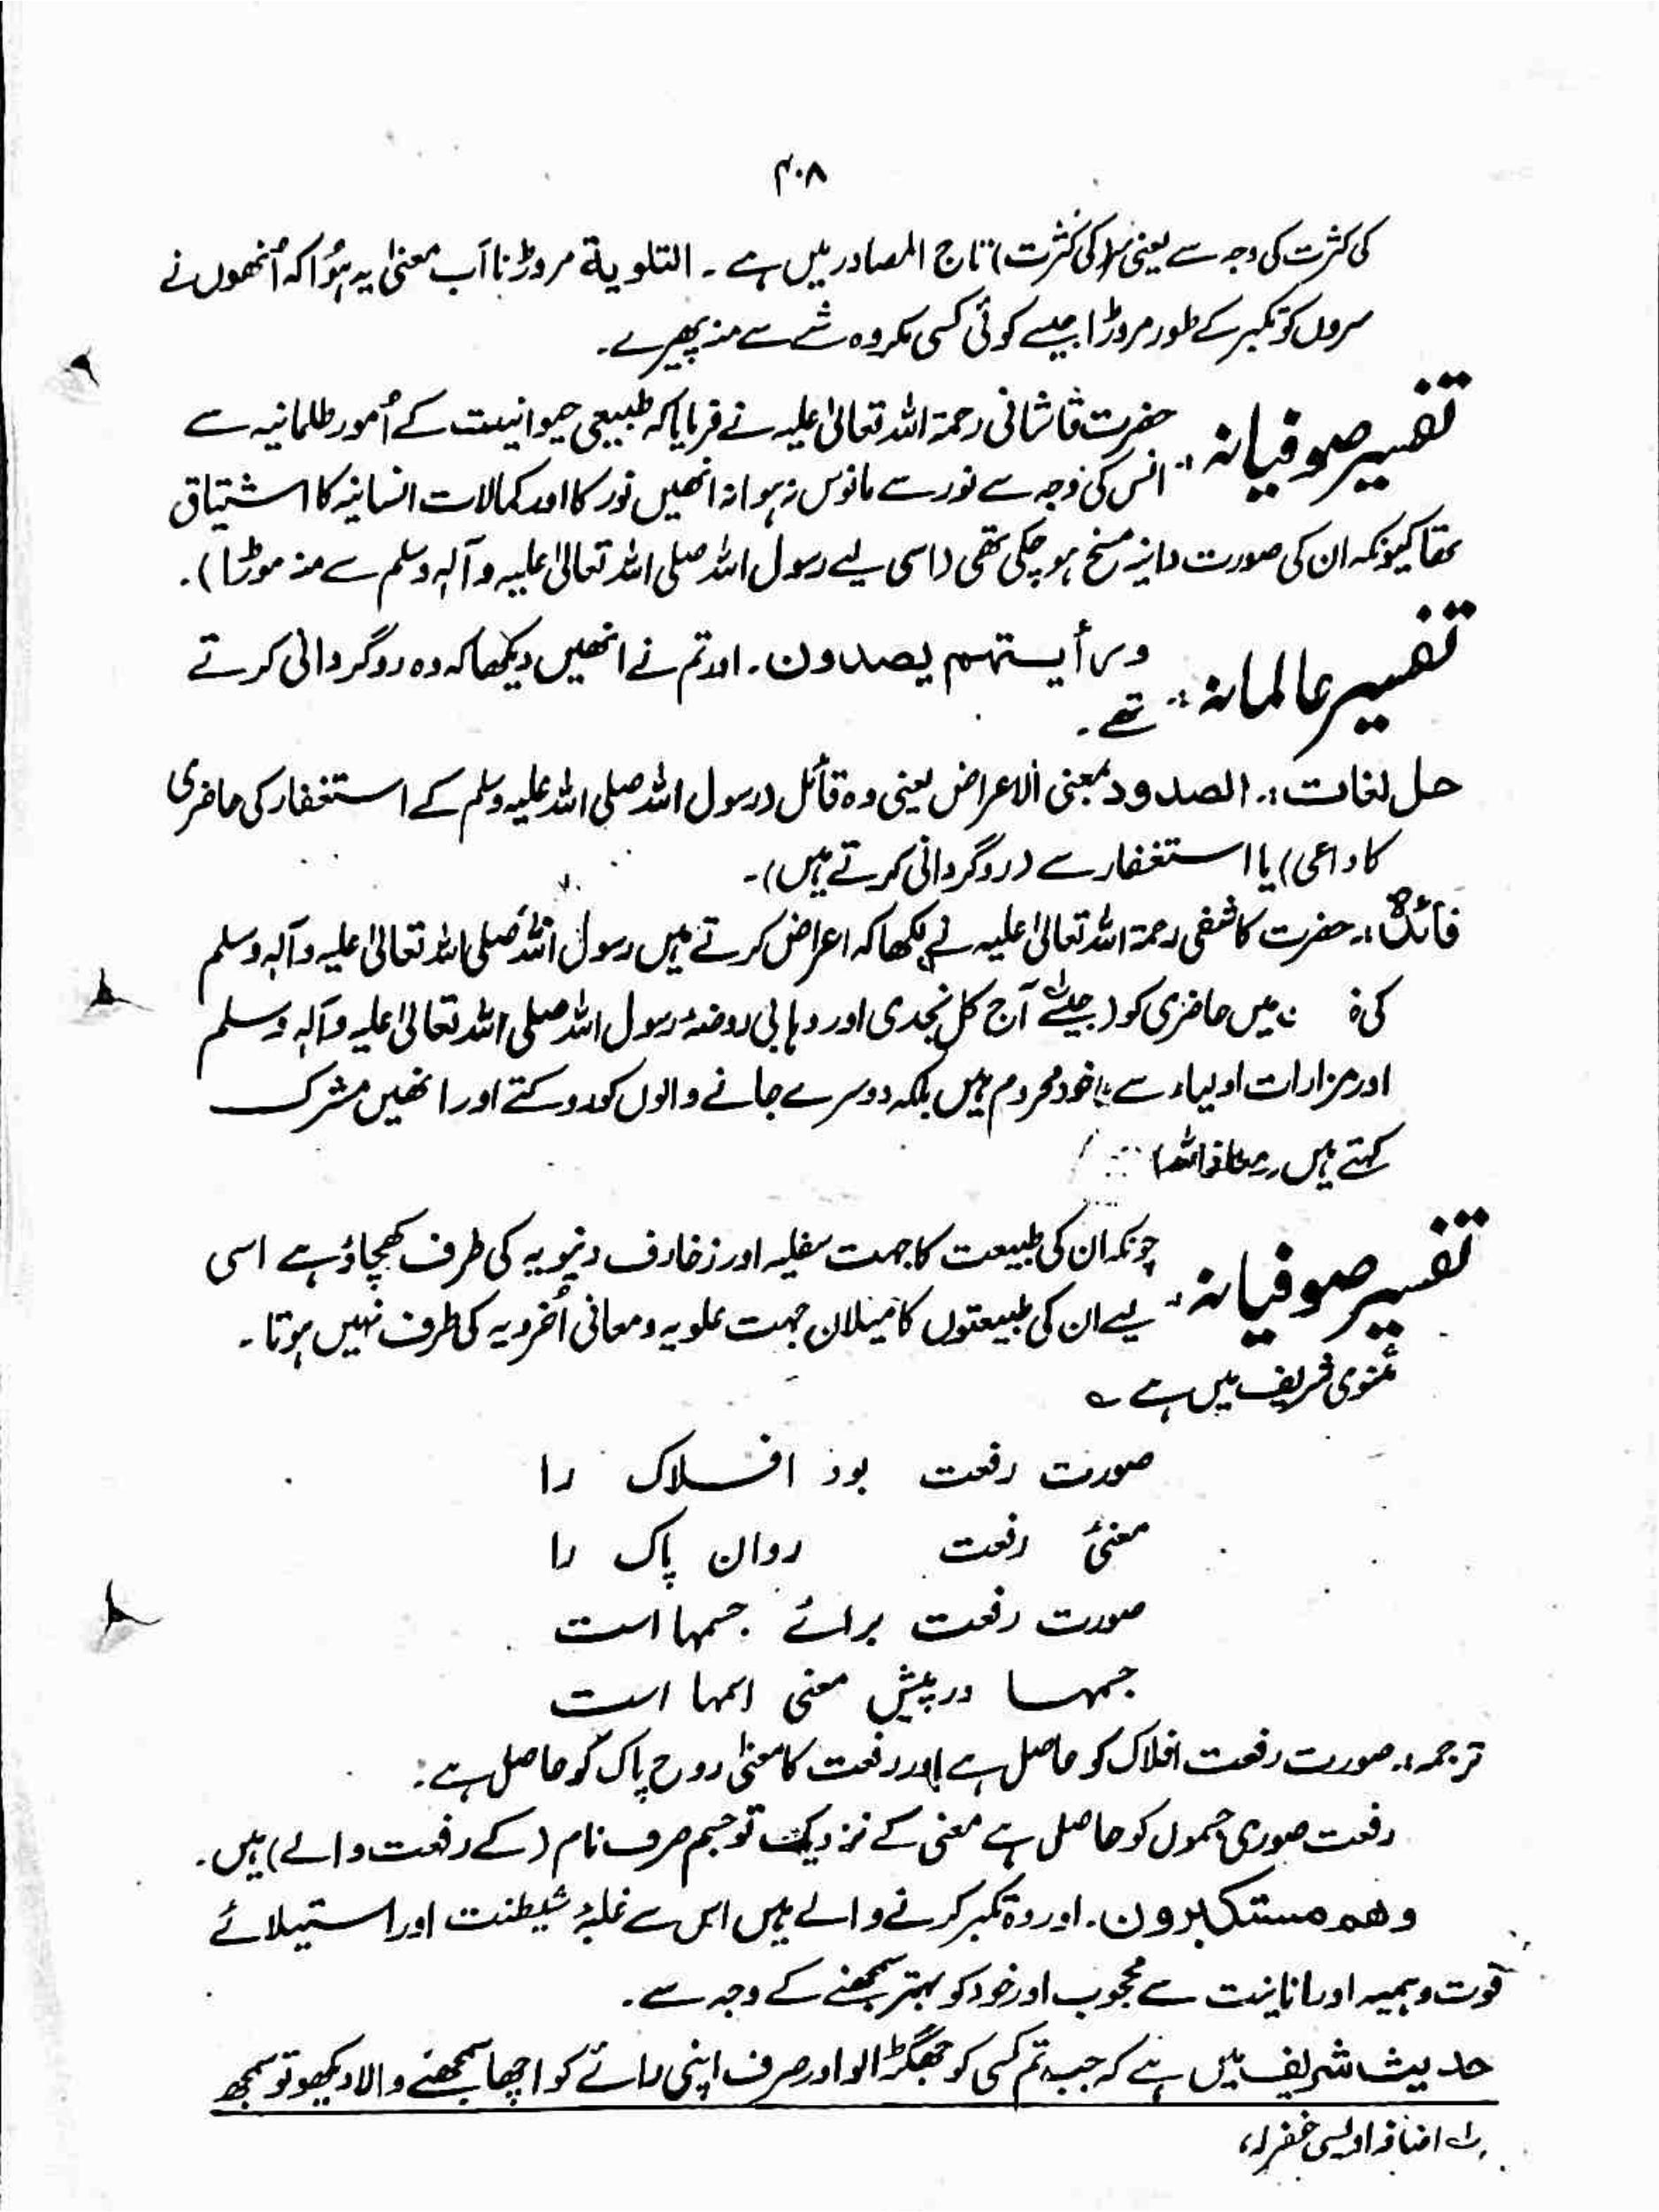 ۴۰۸
کی کثرت کی وجہ سے یعنی سر کی کثرت) تاج المصادر میں ہے ۔ التلویة مروڑنا اَب معنیٰ یہ ہُوا کہ اُنھوں نے
سروں کو تکبر کے طور مروڑا جیسے کوئی کسی مکروہ شے سے منہ پھیرے۔
تفسیر صوفیانہ :- حضرت قاشانی رحمۃ اللہ تعالیٰ علیہ نے فرمایا کہ طبیعی حیوانیت کے اُمور ظلمانیہ سے
انس کی وجہ سے نور سے مانوس نہ ہوا نہ انھیں نور کا اور کمالات انسانیہ کا اشتیاق
تھا کیونکہ ان کی صورت ذاتیہ مسخ ہو چکی تھی (اسی لیے رسول اللہ صلی اللہ تعالیٰ علیہ وآلہ وسلم سے منہ موڑتا)۔
تفسیر عالمانہ :- ورأیتہم یصدون۔ اور تم نے انھیں دیکھا کہ وہ روگردانی کرتے
تھے ۔
حل لغات :۔ الصدود بمعنی الاعراض یعنی وہ قائل (رسول اللہ صلی اللہ علیہ وسلم کے استغفار کی حاضری
کا داعی) یا استغفار سے (روگردانی کرتے ہیں)۔
فائدہ :۔ حضرت کاشفی رحمۃ اللہ تعالیٰ علیہ نے لکھا کہ اعراض کرتے ہیں رسول اللہ صلی اللہ تعالیٰ علیہ وآلہ وسلم
کی میں حاضری کو (جیسے آج کل نجدی اور وہابی روضۂ رسول اللہ صلی اللہ تعالیٰ علیہ وآلہ وسلم
اور مزارات اولیاء سے نہ خود محروم ہیں بلکہ دوسرے جانے والوں کو روکتے اور انھیں مشرک
کہتے ہیں (معاذ اللہ)
تفسیر صوفیانہ :- چونکہ ان کی طبیعت کا جہت سفلیہ اور زخارف دنیویہ کی طرف کھچاؤ ہے اسی
لیے ان کی طبیعتوں کا میلان جہت علویہ و معانی اُخرویہ کی طرف نہیں ہوتا ۔
مثنوی شریف میں ہے ؎
صورت رفعت بود افلاک را
معنیٔ رفعت روان پاک را
صورت رفعت برائے جسمہا است
جسمہا در پیش معنی اسمہا است
ترجمہ :۔ صورت رفعت افلاک کو حاصل ہے اور رفعت کا معنیٰ روح پاک کو حاصل ہے :
رفعت صوری جسموں کو حاصل ہے معنی کے نزدیک تو جسم صرف نام (کے رفعت والے) ہیں ۔
وھم مستکبرون۔ اور وہ تکبر کرنے والے ہیں اس سے غلبۂ شیطنت اور استیلائے
قوت وہمیہ اور انانیت سے محجوب اور خود کو بہتر سمجھنے کے وجہ سے ۔
حدیث شریف میں ہے کہ جب تم کسی کو جھگڑالو اور صرف اپنی رائے کو اچھا سمجھنے والا دیکھو تو سمجھ
لے اضافہ اویسی غفرلہ،